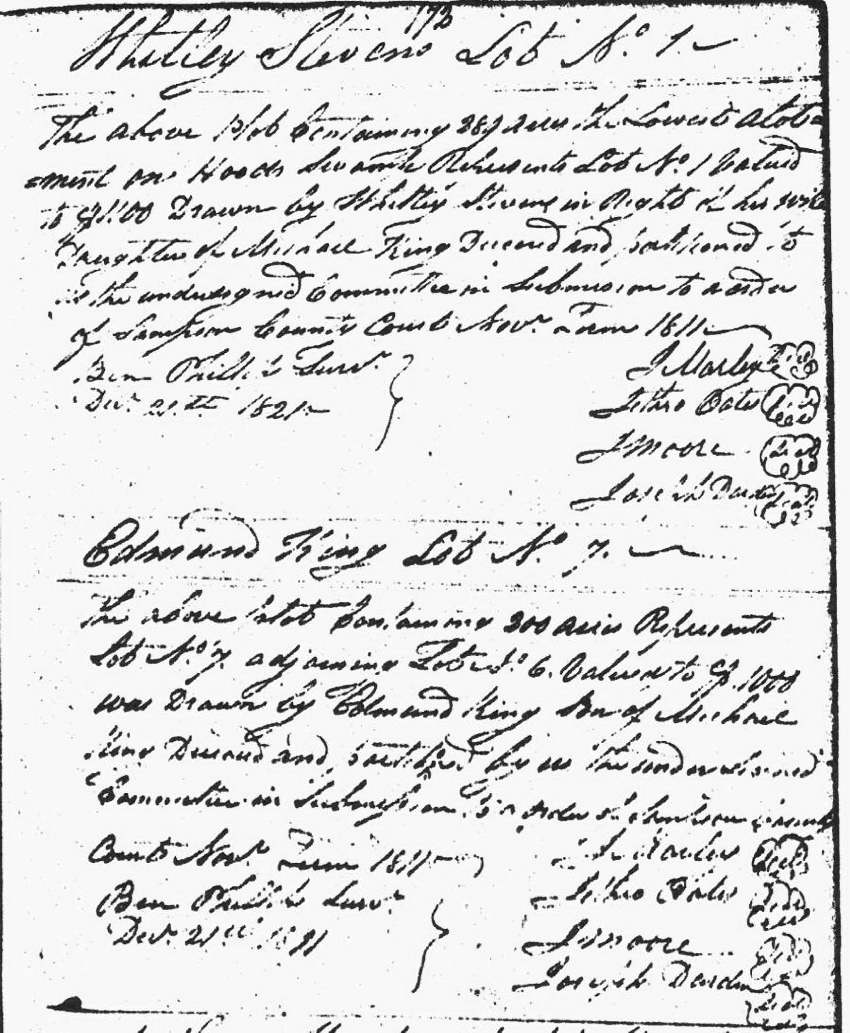 173
Whitley Stevens Lot No. 1
The above Plot Containing 289 acres the Lowest alot=
=ment on Hoods Swamp Represents Lot No. 1 Valued
to $1100 Drawn by Whitley Stevens in Right of his wife
Daughter of Michael King Deceased and partitioned to
the undersigned Committee in Submission to a order
of Sampson County Court Novr. Term 1811
Ben Phillips Survr.
Decr. 21st 1821
J Marley Seal
Jethro Oates Seal
J Moore Seal
Joseph Darden Seal
Edmund King Lot No. 7.
The above plot Containing 300 acres Represents
Lot No. 7. adjoining Lot No. 6. Valued to $1000
was Drawn by Edmund King Son of Michael
King Deceased and certified by us the undersigned
Committee in Submission to order of Sampson County
Court Novr. Term 1811
Ben Phillips Survr.
Decr. 21st
J. Marley Seal
Jethro Oates Seal
J Moore Seal
Joseph Darden Seal